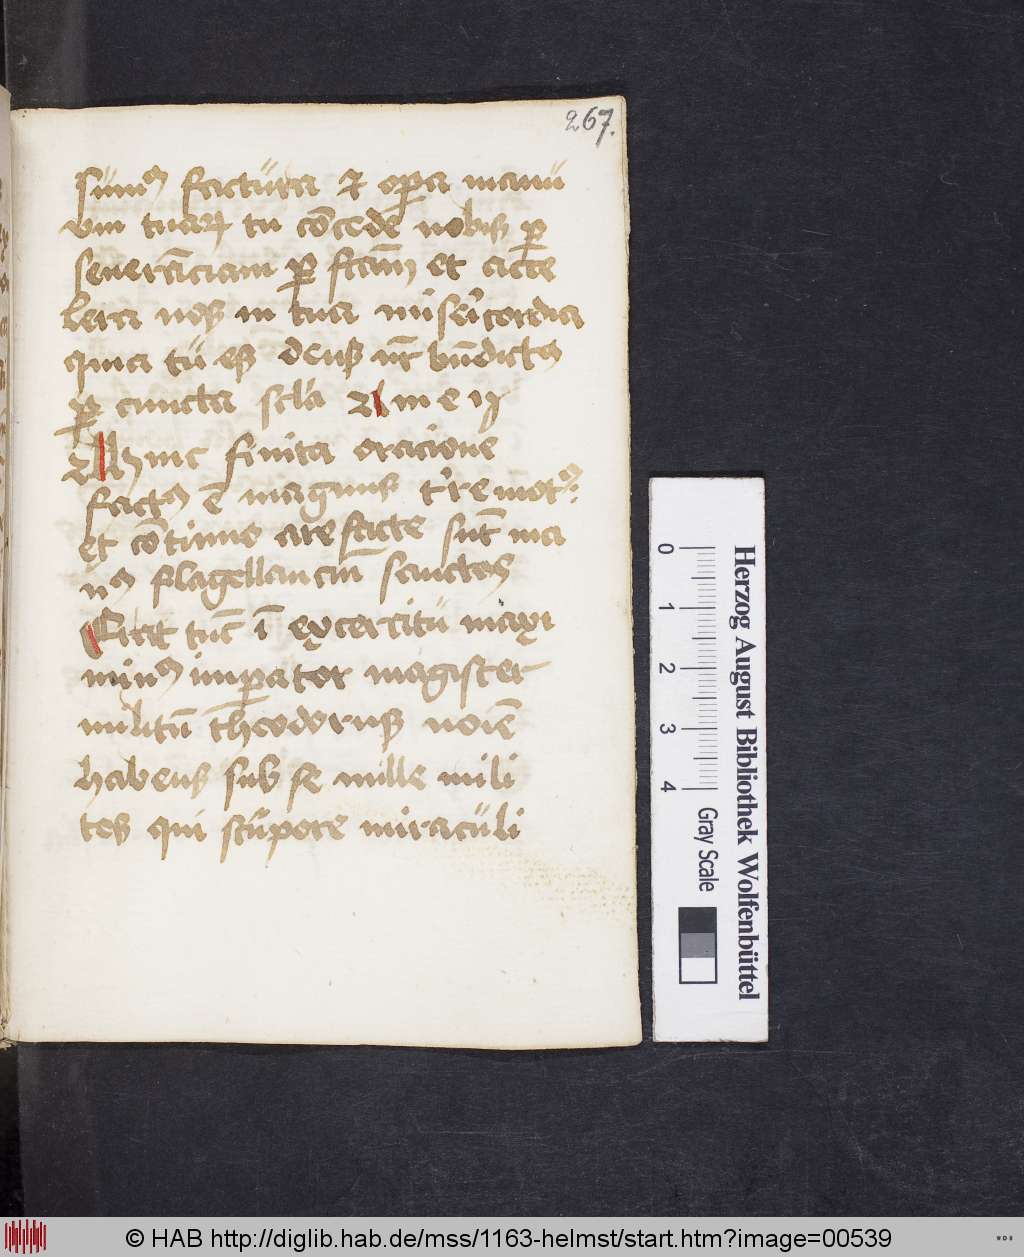 267.
sumus factura et opera manu
um tuarum tu concede nobis per
seueranciam per fidem et accele
lera nos in tua misericordia
quia tu es deus noster benedictus
per cuncta secula Amen
Hinc finita oracione
factus est magnus terre motus
et continue arefacte sunt ma
nus flagellancium sanctos
Erat tunc in exercitu maxi
minus imperator magister
militum theodorus nomine
habens sub se mille mili
tes qui stupore miraculi
Herzog August Bibliothek Wolfenbüttel
0 1 2 3 4 Gray Scale
© HAB http://diglib.hab.de/mss/1163-helmst/start.htm?image=00539